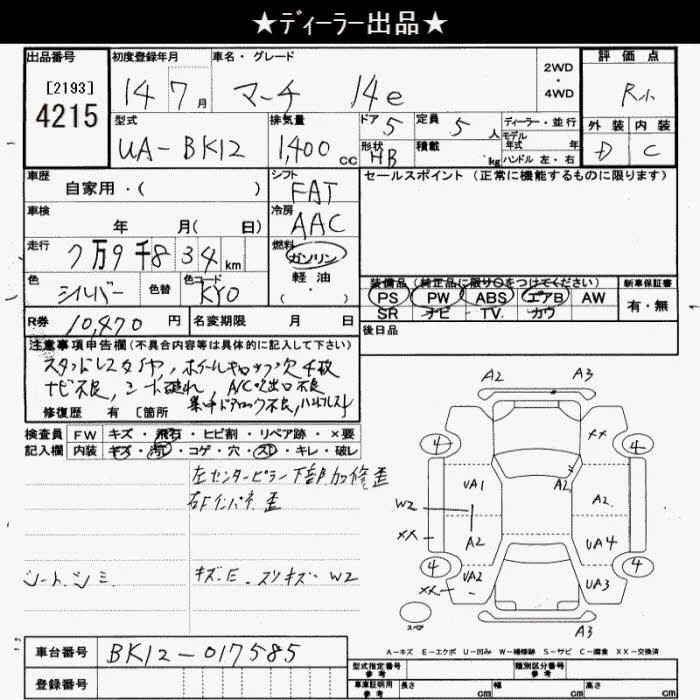 ★ディーラー出品★
出品番号 初度登録年月 車名・グレード 2WD・4WD 評価点
[2193] 4215 14 7月 マーチ 14e R小
型式 排気量 ドア 定員 ディーラー・並行 外装 内装
UA-BK12 1,400cc 5 5人 モデル年式 年 D C
形状 HB 積載 kg ハンドル 左・右
車歴 シフト セールスポイント (正常に機能するものに限ります)
自家用・( ) FAT
車検 冷房
年 月( 日) AAC
走行 7万9千834km 燃料 ガソリン
軽油
・
( )
色 シルバー 色替 色コード KY0
装備品 (純正品に限り○をつけてください) 新車保証書
PS PW ABS エアB AW 有・無
SR ナビ TV カワ
R券 10,470円 名変期限 月 日 後日品
注意事項申告欄 (不具合内容等は具体的に記入して下さい)
スタッドレスタイヤ, ホイールキャップ欠4枚
ナビ不良, シート破れ, A/C吹出口不良
集中ドアロック不良, ハンドルスレ
修復歴 有 [箇所
検査員 FW キズ・飛石・ヒビ割・リペア跡・×要
記入欄 内装 キズ・汚れ・コゲ・穴・スレ・キレ・破レ
左センターピラー下部加修歪
右Fインパネ歪
シート.シミ キズ.E.スリキズ.W2
A2 A3
4 XX 4
UA1 A2 A2
W2
XX A2 UA4
4 UA2 UA3 4
XX
スペア A3
A-キズ E-エクボ U-凹み W-補修跡 S-サビ C-腐食 XX-交換済
車台番号 BK12-017585
登録番号
型式指定番号 参考 類別区分番号 参考
車庫証明用 参考 長さ cm 幅 cm 高さ cm